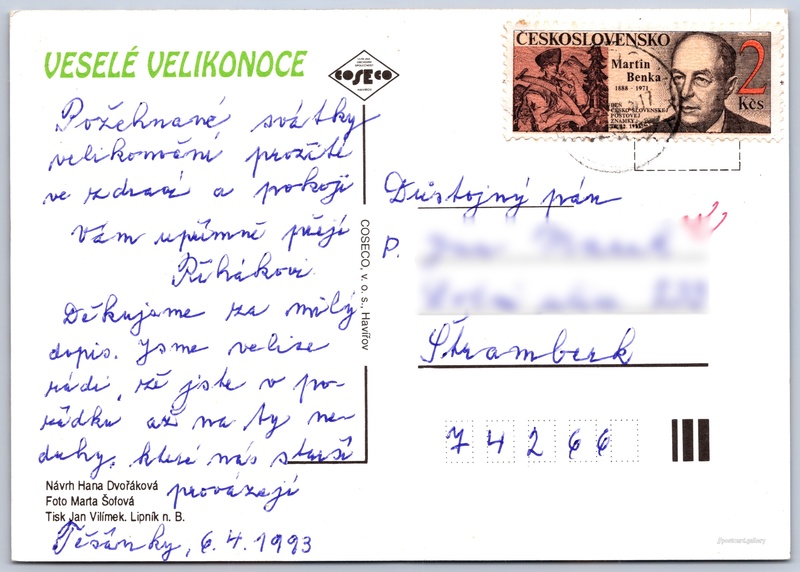 VESELÉ VELIKONOCE
COSECO
HAVÍŘOV
Požehnané svátky
velikonoční prožití
ve zdraví a pokoji
Vám upřímně přejí
Řihákovi.
Děkujeme za milý
dopis. Jsme velice
rádi, že jste v po-
řádku až na ty ne-
duhy, které nás starší
provázejí
Těšánky, 6.4.1993
Návrh Hana Dvořáková
Foto Marta Šofová
Tisk Jan Vilímek, Lipník n. B.
COSECO, v. o. s., Havířov
ČESKOSLOVENSKO
Martin
Benka
1888 - 1971
DEN
ČESKO-SLOVENSKEJ
POŠTOVEJ
ZNÁMKY
2
Kčs
Důstojný pán
P.
Štramberk
742 66
//postcard.gallery